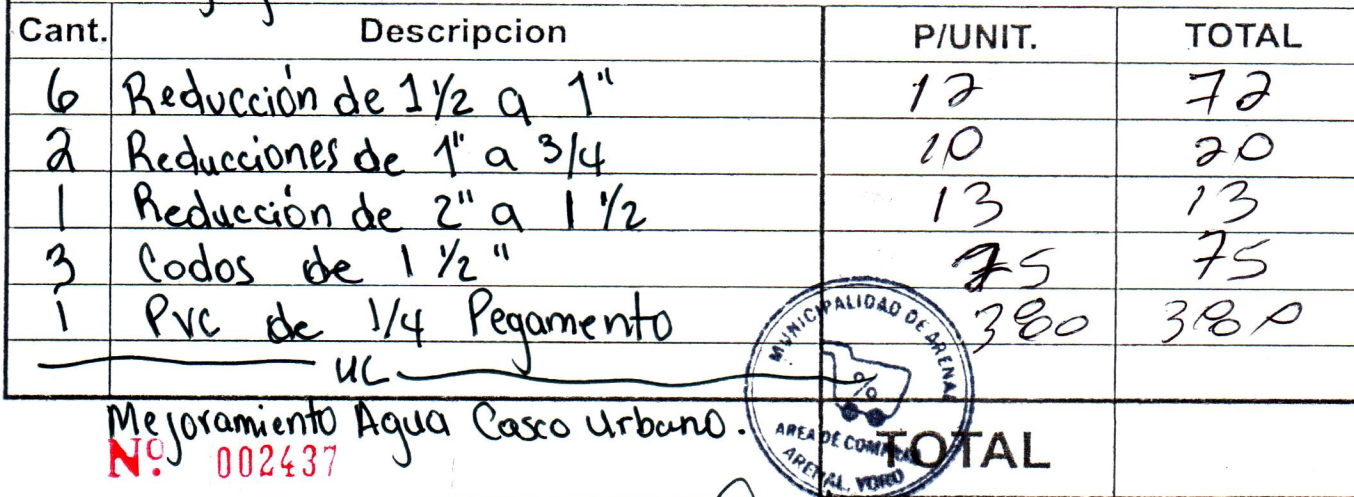 Cant. Descripcion P/UNIT. TOTAL
6 Reducción de 1 1/2 a 1" 12 72
2 Reducciones de 1" a 3/4 10 20
1 Reducción de 2" a 1 1/2 13 13
3 Codos de 1 1/2" 25 75
1 PVC de 1/4 Pegamento 380 380
UL
Mejoramiento Agua Casco Urbano.
Nº 002437
TOTAL
MUNICIPALIDAD DE ARENAL
%
AREA DE COMPRAS
ARENAL, YORO